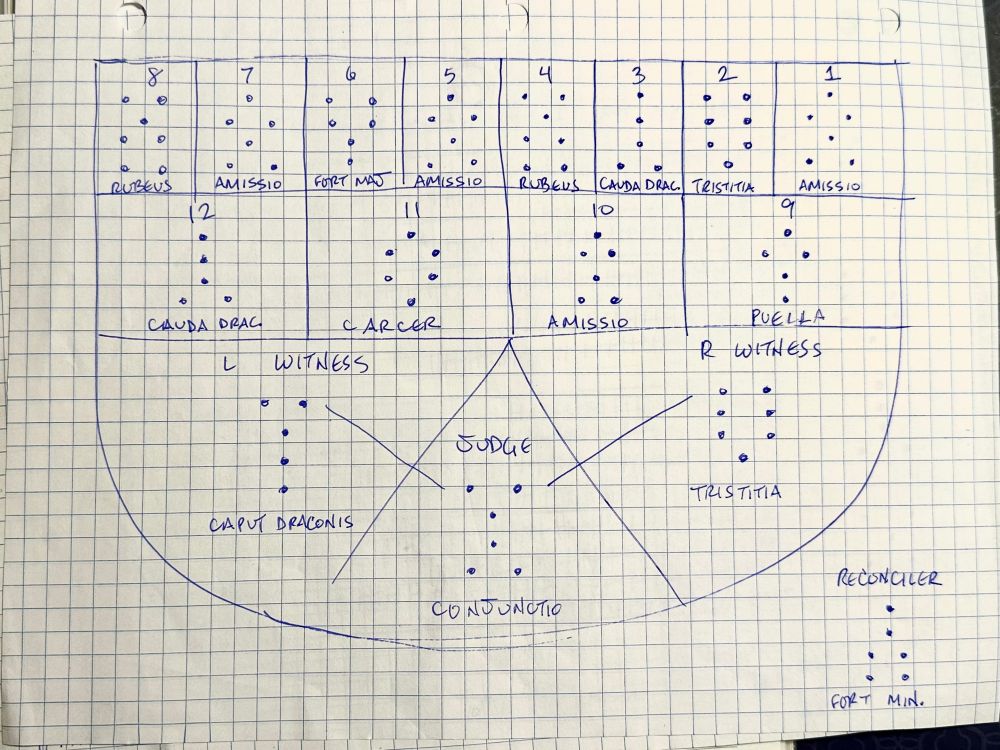 8 7 6 5 4 3 2 1
RUBEUS AMISSIO FORT MAJ AMISSIO RUBEUS CAUDA DRAC. TRISTITIA AMISSIO
12 11 10 9
CAUDA DRAC. CARCER AMISSIO PUELLA
L WITNESS R WITNESS
JUDGE
TRISTITIA
CAPUT DRACONIS
RECONCILER
CONJUNCTIO
FORT MIN.